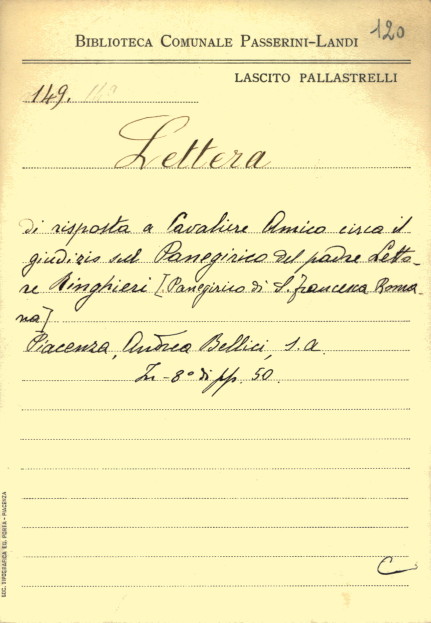 120
BIBLIOTECA COMUNALE PASSERINI-LANDI
LASCITO PALLASTRELLI
149.
Lettera
di risposta a Cavaliere Amico circa il
giudizio sul Panegirico del padre Letto-
re Ringhieri [Panegirico di S. Francesca Roma-
na]
Piacenza, Andrea Bellici, s.a.
In-8° di pp. 50.
C
SOC. TIPOGRAFICA ED. PORTA - PIACENZA